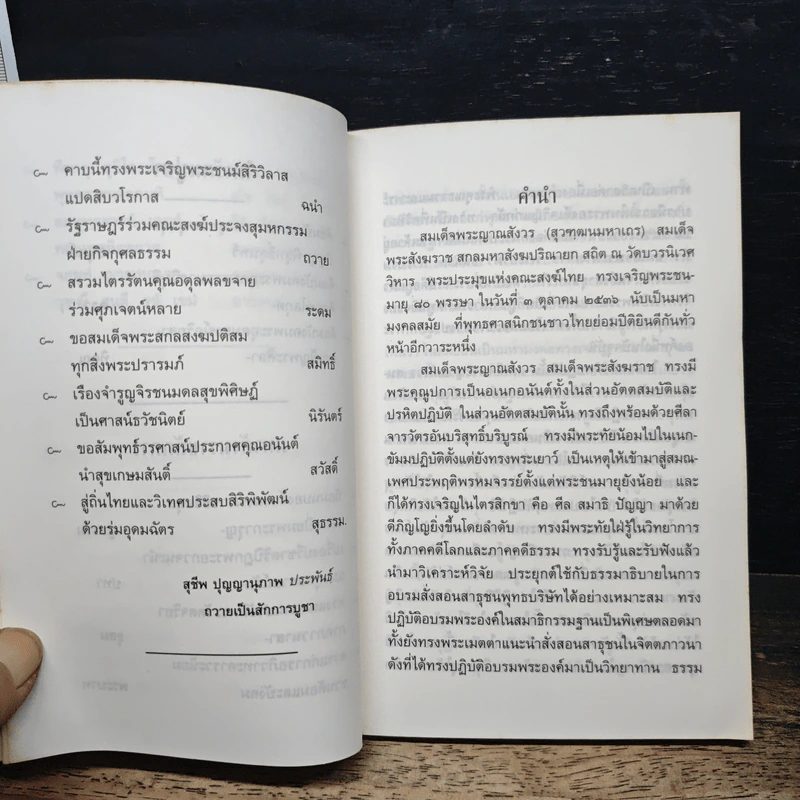 ๛ คาบนี้ทรงพระเจริญพระชนม์สิริวิลาส
แปดสิบวโรกาส ฉนำ
๛ รัฐราษฎร์ร่วมคณะสงฆ์ประจงสุมหกรรม
ฝ่ายกิจกุศลธรรม ถวาย
๛ สรวมไตรรัตนคุณอดุลพลขจาย
ร่วมศุภเจตน์หลาย ระดม
๛ ขอสมเด็จพระสกลสงฆปติสม
ทุกสิ่งพระปรารมภ์ สมิทธิ์
๛ เรืองจำรูญจิรชนมดลสุขพิศิษฏ์
เป็นศาสน์ธวัชนิตย์ นิรันตร์
๛ ขอสัมพุทธ์วรศาสน์ประกาศคุณอนันต์
นำสุขเกษมสันติ์ สวัสดิ์
๛ สู่ถิ่นไทยและวิเทศประสบสิริพิพัฒน์
ด้วยร่มอุดมฉัตร สุธรรม.
สุชีพ ปุญญานุภาพ ประพันธ์
ถวายเป็นสักการบูชา
คำนำ
สมเด็จพระญาณสังวร (สุวฑฺฒนมหาเถร) สมเด็จ
พระสังฆราช สกลมหาสังฆปริณายก สถิต ณ วัดบวรนิเวศ
วิหาร พระประมุขแห่งคณะสงฆ์ไทย ทรงเจริญพระชน-
มายุ ๘๐ พรรษา ในวันที่ ๓ ตุลาคม ๒๕๓๖ นับเป็นมหา
มงคลสมัย ที่พุทธศาสนิกชนชาวไทยย่อมปีติยินดีกันทั่ว
หน้าอีกวาระหนึ่ง
สมเด็จพระญาณสังวร สมเด็จพระสังฆราช ทรงมี
พระคุณูปการเป็นอเนกอนันต์ทั้งในส่วนอัตตสมบัติและ
ปรหิตปฏิบัติ ในส่วนอัตตสมบัตินั้น ทรงถึงพร้อมด้วยศีลา
จารวัตรอันบริสุทธิ์บริบูรณ์ ทรงมีพระทัยน้อมไปในเนก-
ขัมมปฏิบัติตั้งแต่ยังทรงพระเยาว์ เป็นเหตุให้เข้ามาสู่สมณ-
เพศประพฤติพรหมจรรย์ตั้งแต่พระชนมายุยังน้อย และ
ก็ได้ทรงเจริญในไตรสิกขา คือ ศีล สมาธิ ปัญญา มาด้วย
ดีภิญโญยิ่งขึ้นโดยลำดับ ทรงมีพระทัยใฝ่รู้ในวิทยาการ
ทั้งภาคคดีโลกและภาคคดีธรรม ทรงรับรู้และรับฟังแล้ว
นำมาวิเคราะห์วิจัย ประยุกต์ใช้กับธรรมาธิบายในการ
อบรมสั่งสอนสาธุชนพุทธบริษัทได้อย่างเหมาะสม ทรง
ปฏิบัติอบรมพระองค์ในสมาธิกรรมฐานเป็นพิเศษตลอดมา
ทั้งยังทรงพระเมตตาแนะนำสั่งสอนสาธุชนในจิตตภาวนา
ดังที่ได้ทรงปฏิบัติอบรมพระองค์มาเป็นวิทยาทาน ธรรม